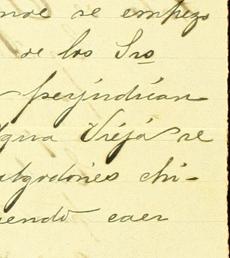 se empezo
de los Sro
perjudican
Agua Vieja se
algodones chi-
endo caer